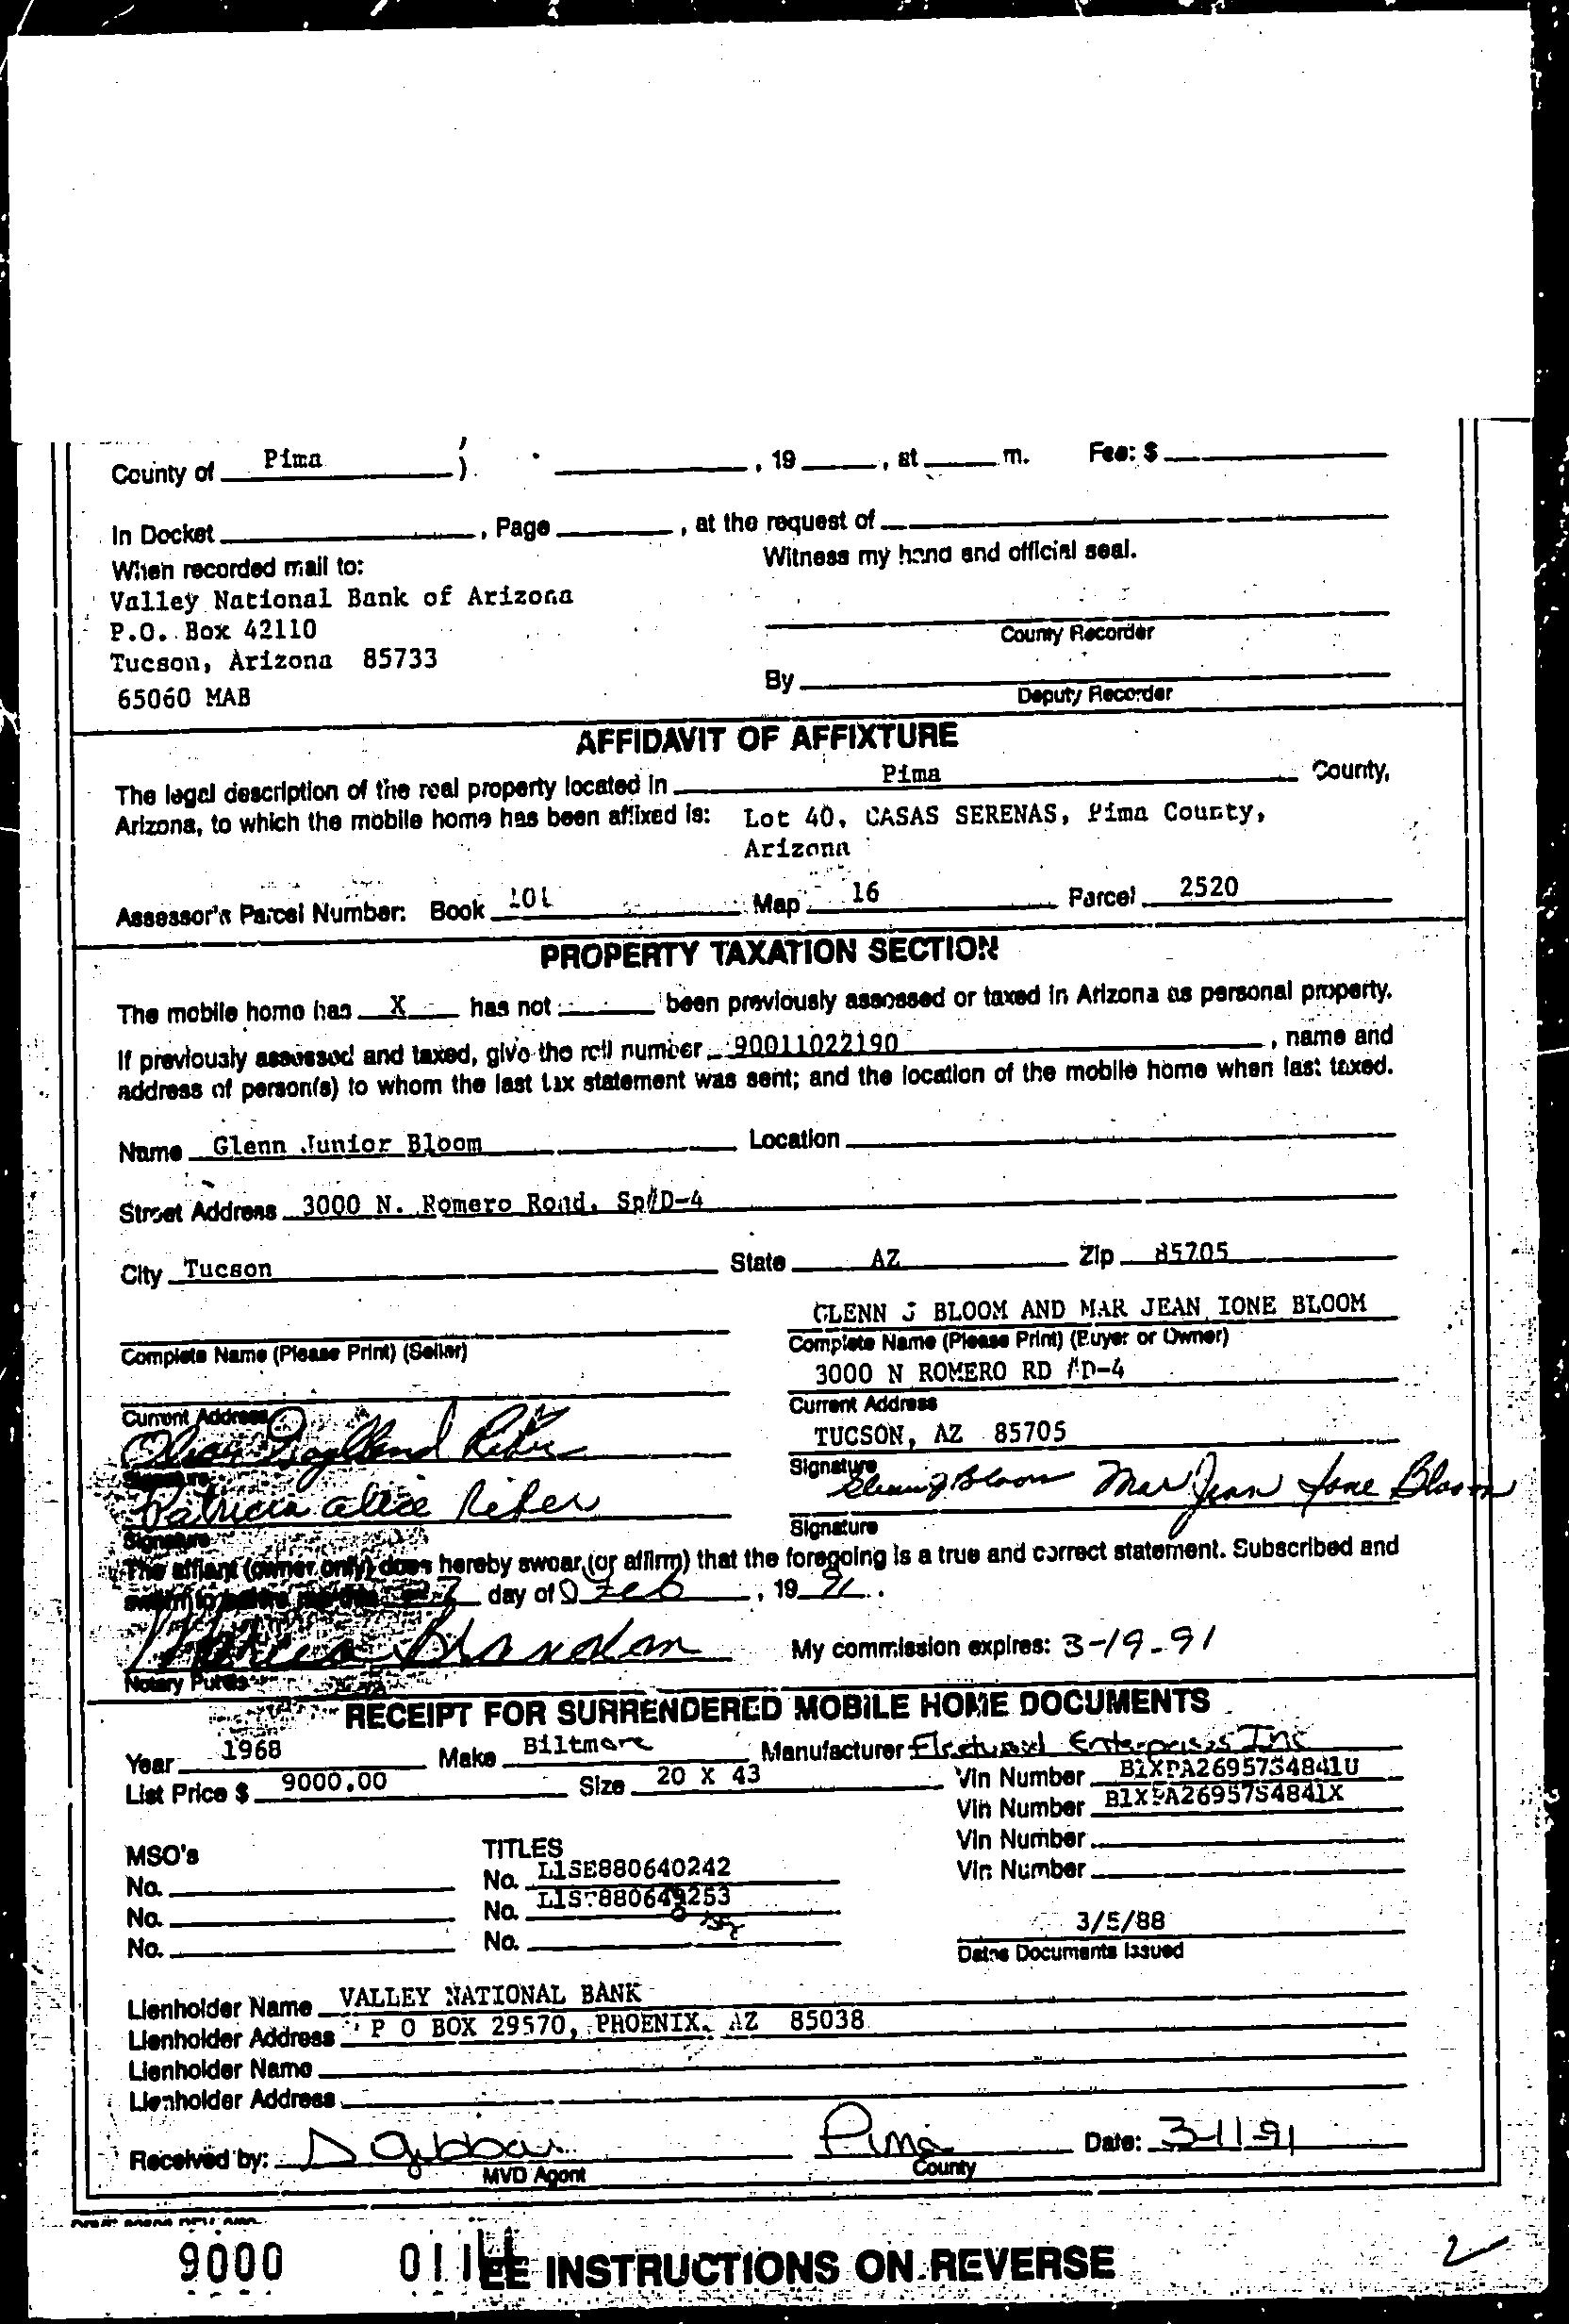 County of Pima ) , 19 , at m. Fee: $
In Docket , Page , at the request of
When recorded mail to: Witness my hand and official seal.
Valley National Bank of Arizona
P.O. Box 42110
County Recorder
Tucson, Arizona 85733
65060 MAB By
Deputy Recorder
AFFIDAVIT OF AFFIXTURE
The legal description of the real property located in Pima County,
Arizona, to which the mobile home has been affixed is: Lot 40, CASAS SERENAS, Pima County,
Arizona
Assessor's Parcel Number: Book Map 16 Parcel 2520
PROPERTY TAXATION SECTION
The mobile home has X has not been previously assessed or taxed in Arizona as personal property.
If previously assessed and taxed, give the roll number 90011022190 , name and
address of person(s) to whom the last tax statement was sent; and the location of the mobile home when last taxed.
Name Glenn Junior Bloom Location
Street Address 3000 N. Romero Road, Sp#D-4
City Tucson State AZ Zip 85705
GLENN J BLOOM AND MAR JEAN IONE BLOOM
Complete Name (Please Print) (Seller) Complete Name (Please Print) (Buyer or Owner)
3000 N ROMERO RD #D-4
Current Address Current Address
TUCSON, AZ 85705
Signature Signature
Glenn J Bloom Mar Jean Ione Bloom
Patricia Alice
Signature Signature
The affiant (owner only) does hereby swear (or affirm) that the foregoing is a true and correct statement. Subscribed and
sworn to before me this 27 day of Feb , 19 91 .
My commission expires: 3-19-91
Notary Public
RECEIPT FOR SURRENDERED MOBILE HOME DOCUMENTS
Year 1968 Make Biltmore Manufacturer Fleetwood Enterprises Inc
List Price $ 9000.00 Size 20 X 43 Vin Number B1XPA26957S4841U
Vin Number B1XPA26957S4841X
MSO's TITLES Vin Number
No. No. L1SE880640242 Vin Number
No. No.
No. No. 3/5/88
Dates Documents Issued
Lienholder Name VALLEY NATIONAL BANK
Lienholder Address P O BOX 29570, PHOENIX, AZ 85038
Lienholder Name
Lienholder Address
Received by: D Pima Date: 3-11-91
MVD Agent County
9000 EE INSTRUCTIONS ON REVERSE 2